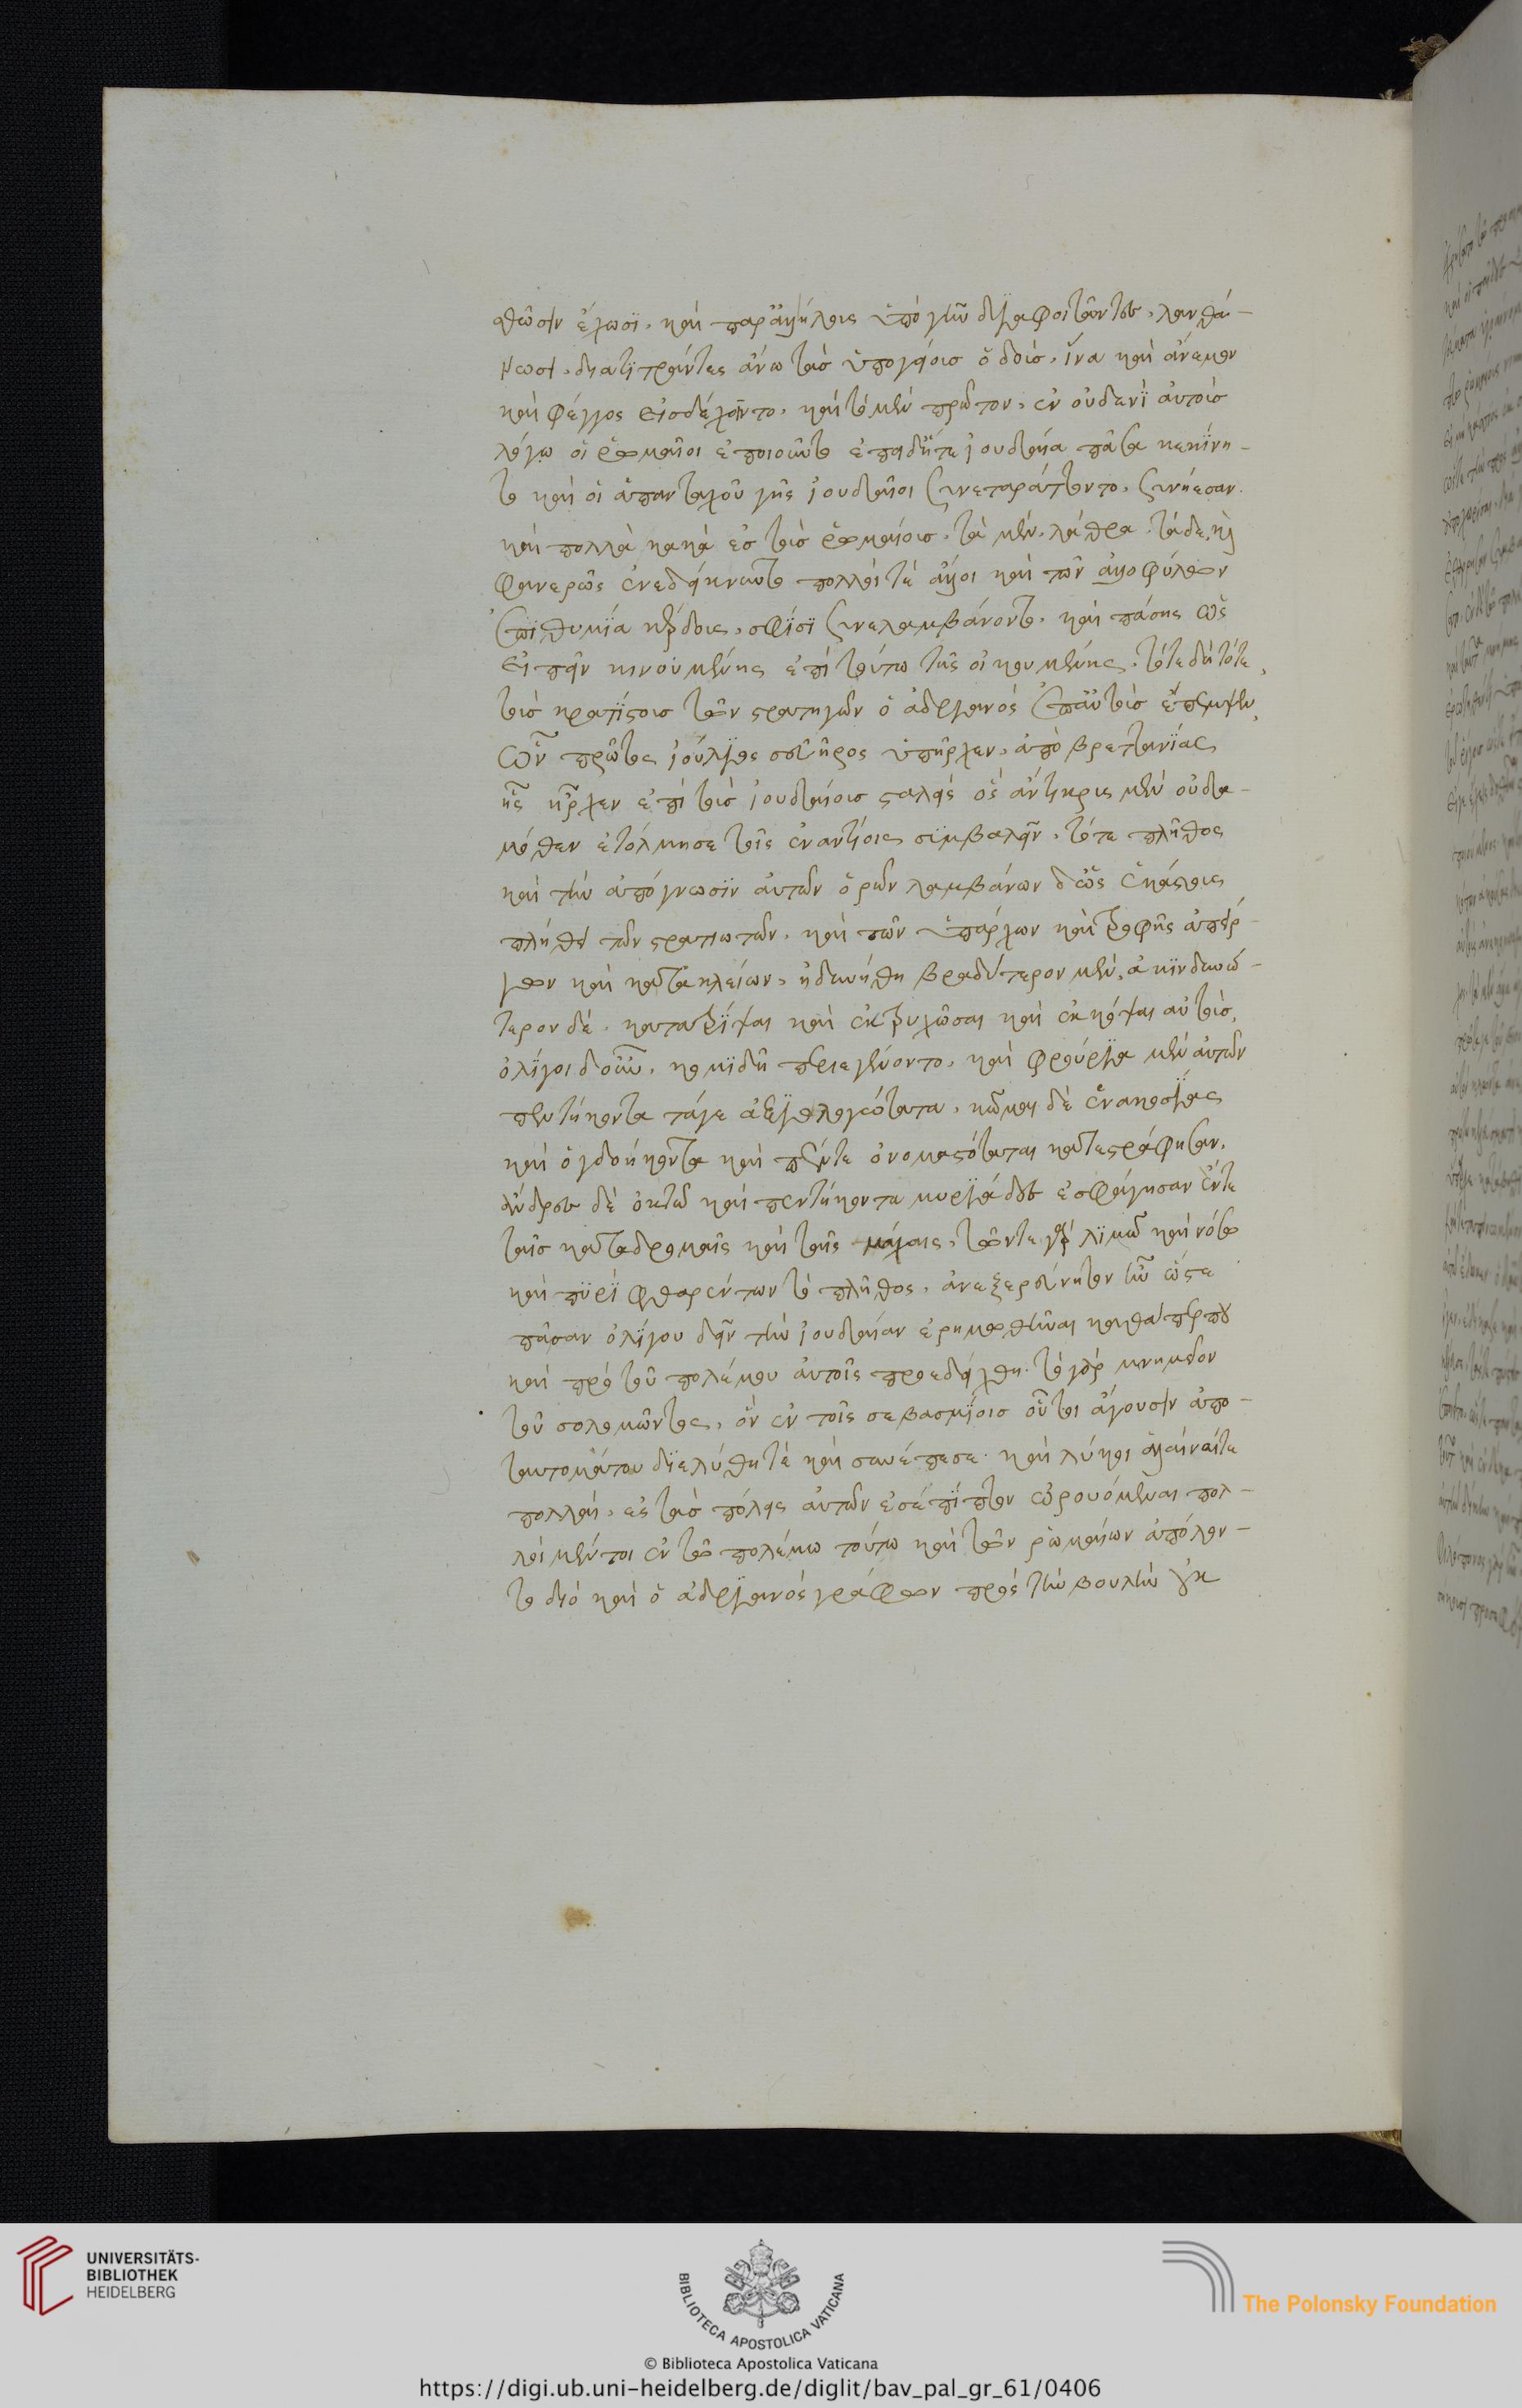 σθῶσιν ἔχωσϊ. καὶ παρἀλλήλοις ὑπὸ γῆν δϊαφοιτῶντες. λανθά-
νωσι. διατϊτράντες ἄνω τὰσ ὑπογείοισ ὁδοὺσ. ἵνα καὶ ἄνεμον
καὶ φέγγος εἰσδέχοιντο. καὶ τὸ μὲν πρῶτον. ἐν οὐδενϊ αὐτοὺσ
λόγω οἱ ῥωμαῖοι ἐποιοῦντο ἐπειδἤτε ἰουδαία πᾶσα κεκίνη-
το καὶ οἱ ἁπανταχοῦ γῆς ἰουδαῖοι συνεταράττοντο. συνήεσαν.
καὶ πολλὰ κακὰ ἐσ τοὺσ ῥωμαίουσ. τὰ μὲν. λάθρα. τὰ δὲ καὶ
φανερῶς ἐνεδείκνυντο πολλοί τὲ ἄλλοι καὶ τῶν ἀλλοφύλων
ἐπϊθυμΐα κέρδους. σφΐσϊ συνελαμβάνοντο. καὶ πάσης ὡς
εἰπεῖν κινουμένης ἐπὶ τούτω τῆς οἰκουμένης. τότε δὴ τότε
τοὺσ κρατΐστουσ τῶν στρατηγῶν ὁ ἀδριανὸς ἐπαὐτοὺσ ἔπεμψεν
ὧν πρῶτος ἰούλϊος σευῆρος ὑπῆρχεν. ἀπὸ βρεττανΐας
ἧς ἦρχεν ἐπὶ τοὺσ ἰουδαίουσ σταλεὶς ὃς ἄντικρις μὲν οὐδα-
μόθεν ἐτόλμησε τοῖς ἐναντίοις σϊμβαλεῖν. τότε πλῆθος
καὶ τὴν ἀπόγνωσϊν αὐτῶν ὁρῶν λαμβάνων δὡς ἑκάστους
πλήθει τῶν στρατιωτῶν. καὶ τῶν ὑπάρχων καὶ τροφῆς ἀπείρ-
γων καὶ κατακλείων. ἠδυνήθη βραδύτερον μὲν. ἀκϊνδυνώ-
τερον δὲ. κατατρΐψαι καὶ ἐκτρυχῶσαι καὶ ἐκκόψαι αὐτοὺσ.
ὀλϊγοι δοὖν. κομϊδῆ περιεγένοντο. καὶ φρούρϊα μὲν αὐτῶν
πεντήκοντα τάγε ἀξϊολογώτατα. κῶμαι δὲ ἐνακοσϊαι
καὶ ὀγδοήκοντα καὶ πέντε ὀνομαστόταται κατεστράφησαν.
ἄνδρες δὲ ὀκτὼ καὶ πεντήκοντα μυρϊάδες ἐσφάγησαν ἔντε
ταῖσ καταδρομαῖς καὶ ταῖς μάχαις. τῶντε γὰρ λϊμῶ καὶ νόσω
καὶ πϋρὶ φθαρέντων τὸ πλῆθος. ἀνεξερεύνητον ἦν ὥστε
πᾶσαν ὀλϊγου δεῖν τὴν ἰουδαίαν ἐρημωθῆναι καθάπερ που
καὶ πρὸ τοῦ πολέμου αὐτοῖς προεδείχθη. τὸ γὰρ μνημεῖον
τοῦ σολομῶντος. ὃν ἐν τοῖς σεβασμΐοισ οὗτοι ἄγουσιν ἀπο-
ταυτομάτου δϊελύθη τὲ καὶ συνέπεσε. καὶ λύκοι ὕαιναίτε
πολλαὶ. ἐς τὰσ πόλεις αὐτῶν ἐσέπϊπτον ὠρουόμεναι πολ-
λοὶ μέντοι ἐν τῶ πολέμω τούτω καὶ τῶν ῥωμαίων ἀπόλον-
το διὸ καὶ ὁ ἀδρϊανὸς γράφων πρὸς τὴν βουλὴν οὐκ
UNIVERSITÄTS-
BIBLIOTHEK
HEIDELBERG
BIBLIOTECA APOSTOLICA VATICANA
The Polonsky Foundation
© Biblioteca Apostolica Vaticana
https://digi.ub.uni-heidelberg.de/diglit/bav_pal_gr_61/0406